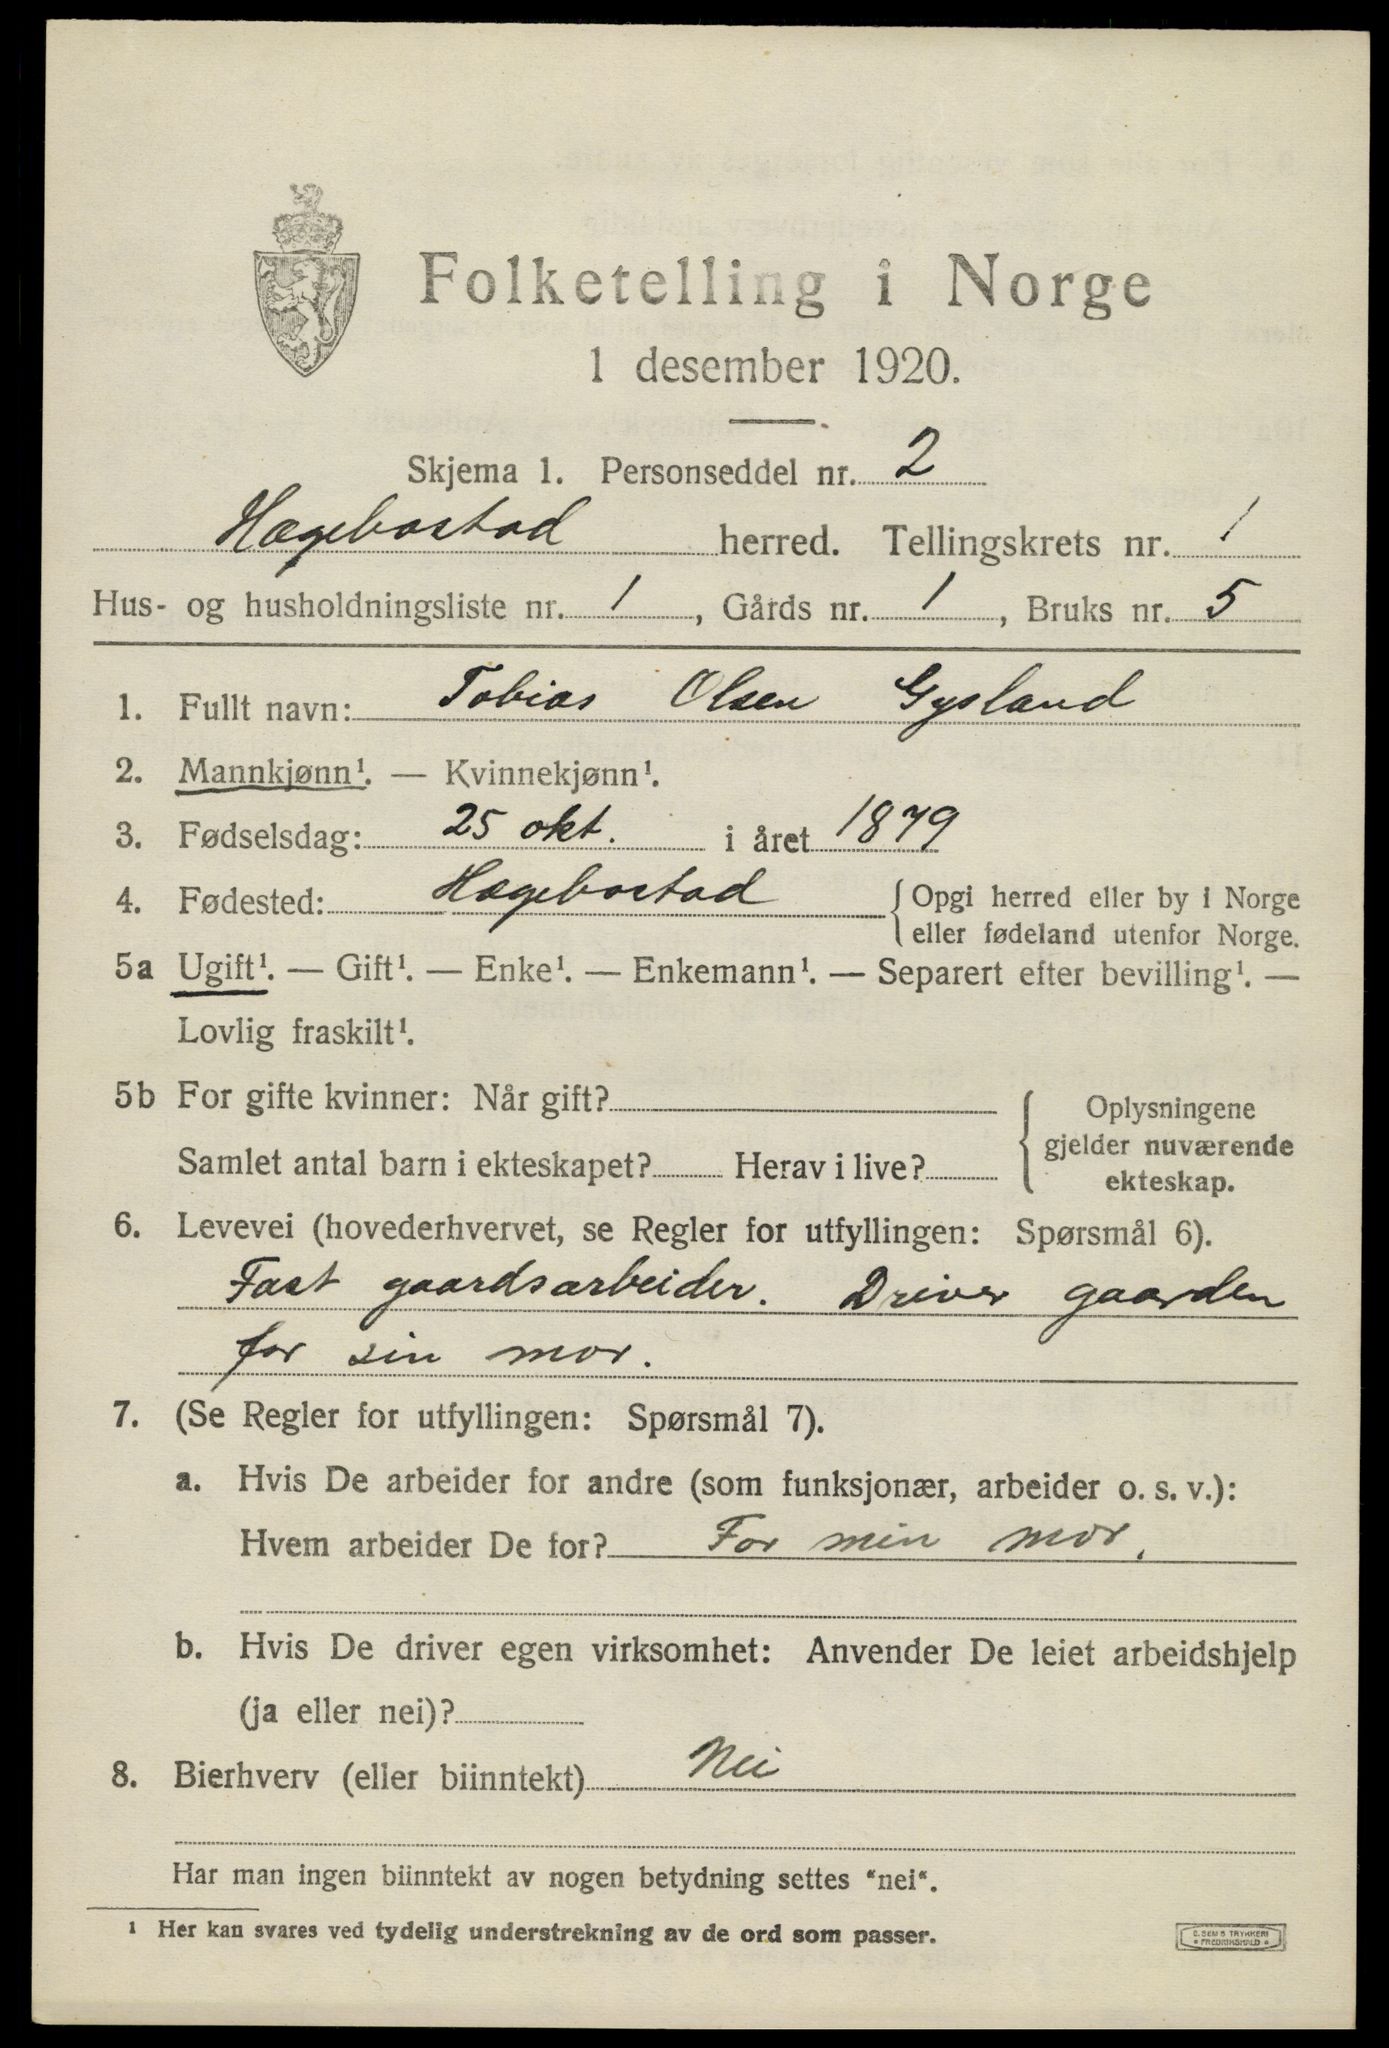 Folketelling i Norge
1 desember 1920.
Skjema 1. Personseddel nr. 2
Hægebostad herred. Tellingskrets nr. 1
Hus- og husholdningsliste nr. 1, Gårds nr. 1, Bruks nr. 5
1. Fullt navn: Tobias Olsen Gysland
2. Mannkjønn¹. — Kvinnekjønn¹.
3. Fødselsdag: 25 okt. i året 1879
4. Fødested: Hægebostad { Opgi herred eller by i Norge
eller fødeland utenfor Norge.
5a Ugift¹. — Gift¹. — Enke¹. — Enkemann¹. — Separert efter bevilling¹. —
Lovlig fraskilt¹.
5b For gifte kvinner: Når gift? { Oplysningene
gjelder nuværende
Samlet antal barn i ekteskapet? Herav i live?
ekteskap.
6. Levevei (hovederhvervet, se Regler for utfyllingen: Spørsmål 6).
Fast gaardsarbeider. Driver gaarden
for sin mor.
7. (Se Regler for utfyllingen: Spørsmål 7).
a. Hvis De arbeider for andre (som funksjonær, arbeider o. s. v.):
Hvem arbeider De for? For min mor.
b. Hvis De driver egen virksomhet: Anvender De leiet arbeidshjelp
(ja eller nei)?
8. Bierhverv (eller biinntekt) Nei
Har man ingen biinntekt av nogen betydning settes "nei".
¹ Her kan svares ved tydelig understrekning av de ord som passer.
C. SEM'S TRYKKERI
FREDRIKSHALD